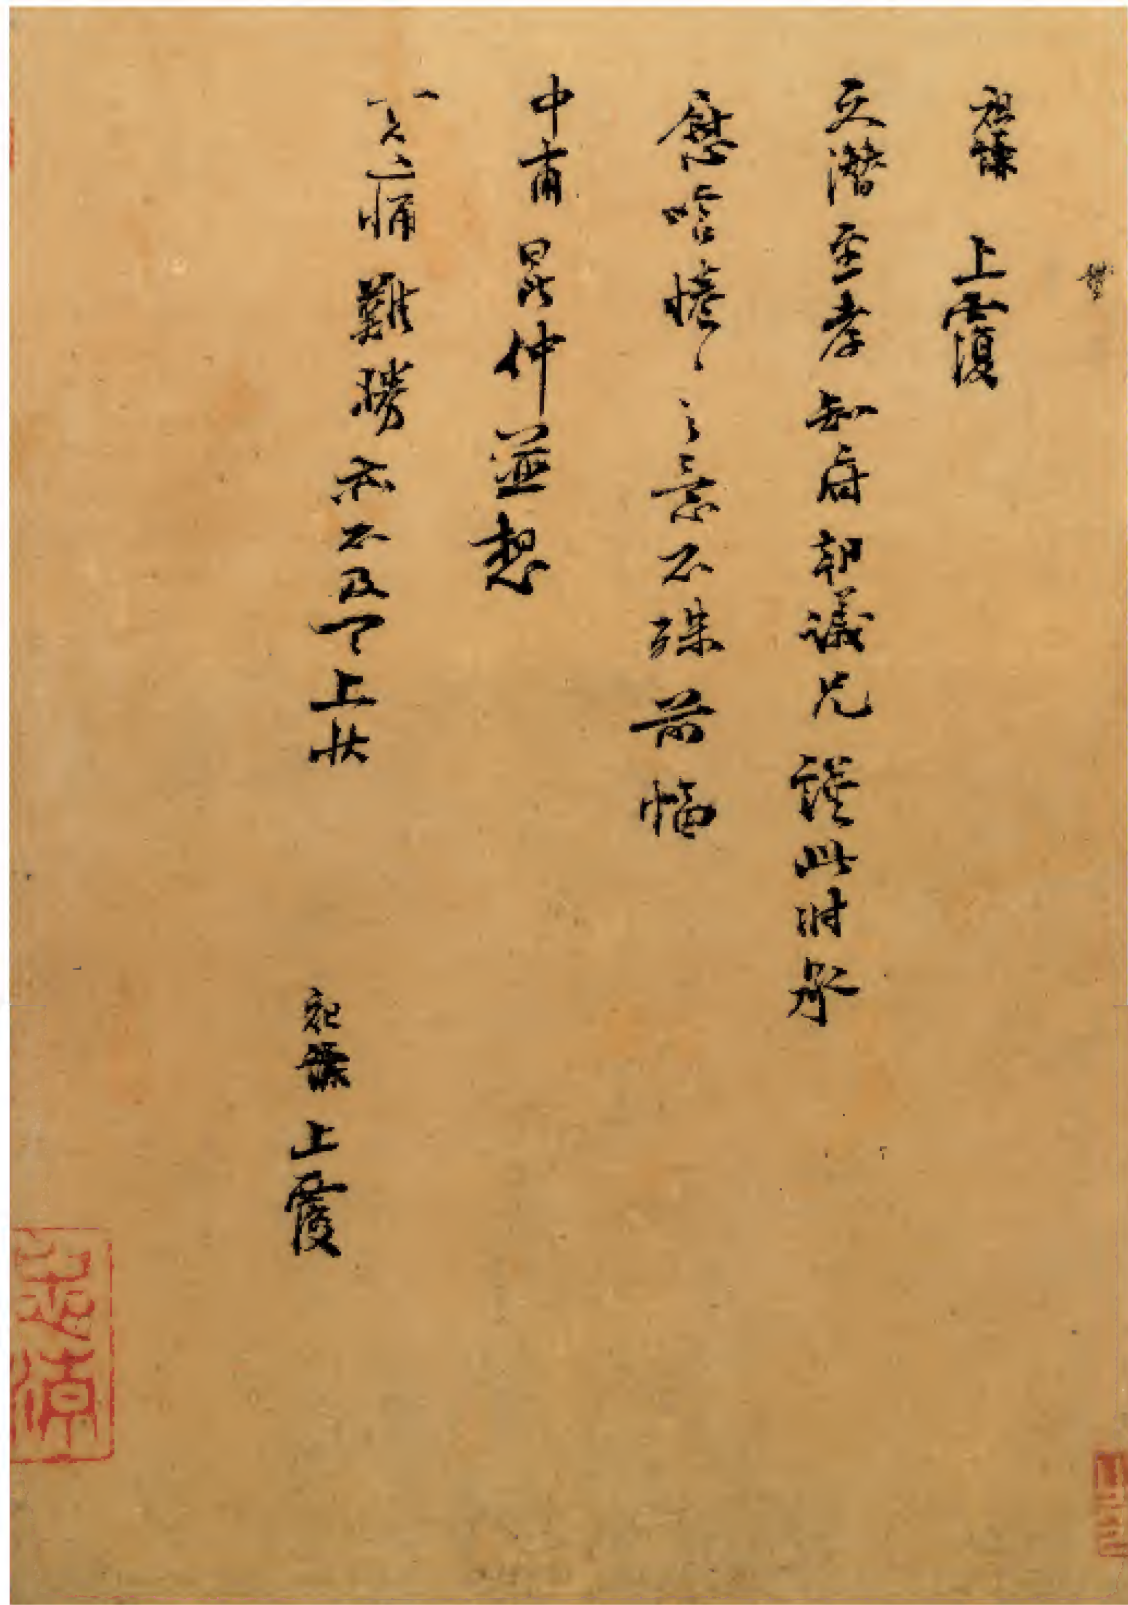 祖謙 上覆
文潛至孝知府朝議兄謹此時承
慰唁惓〻之意不殊前幅
中甫昆仲並想
痛難勝亦不及上狀
祖謙 上覆